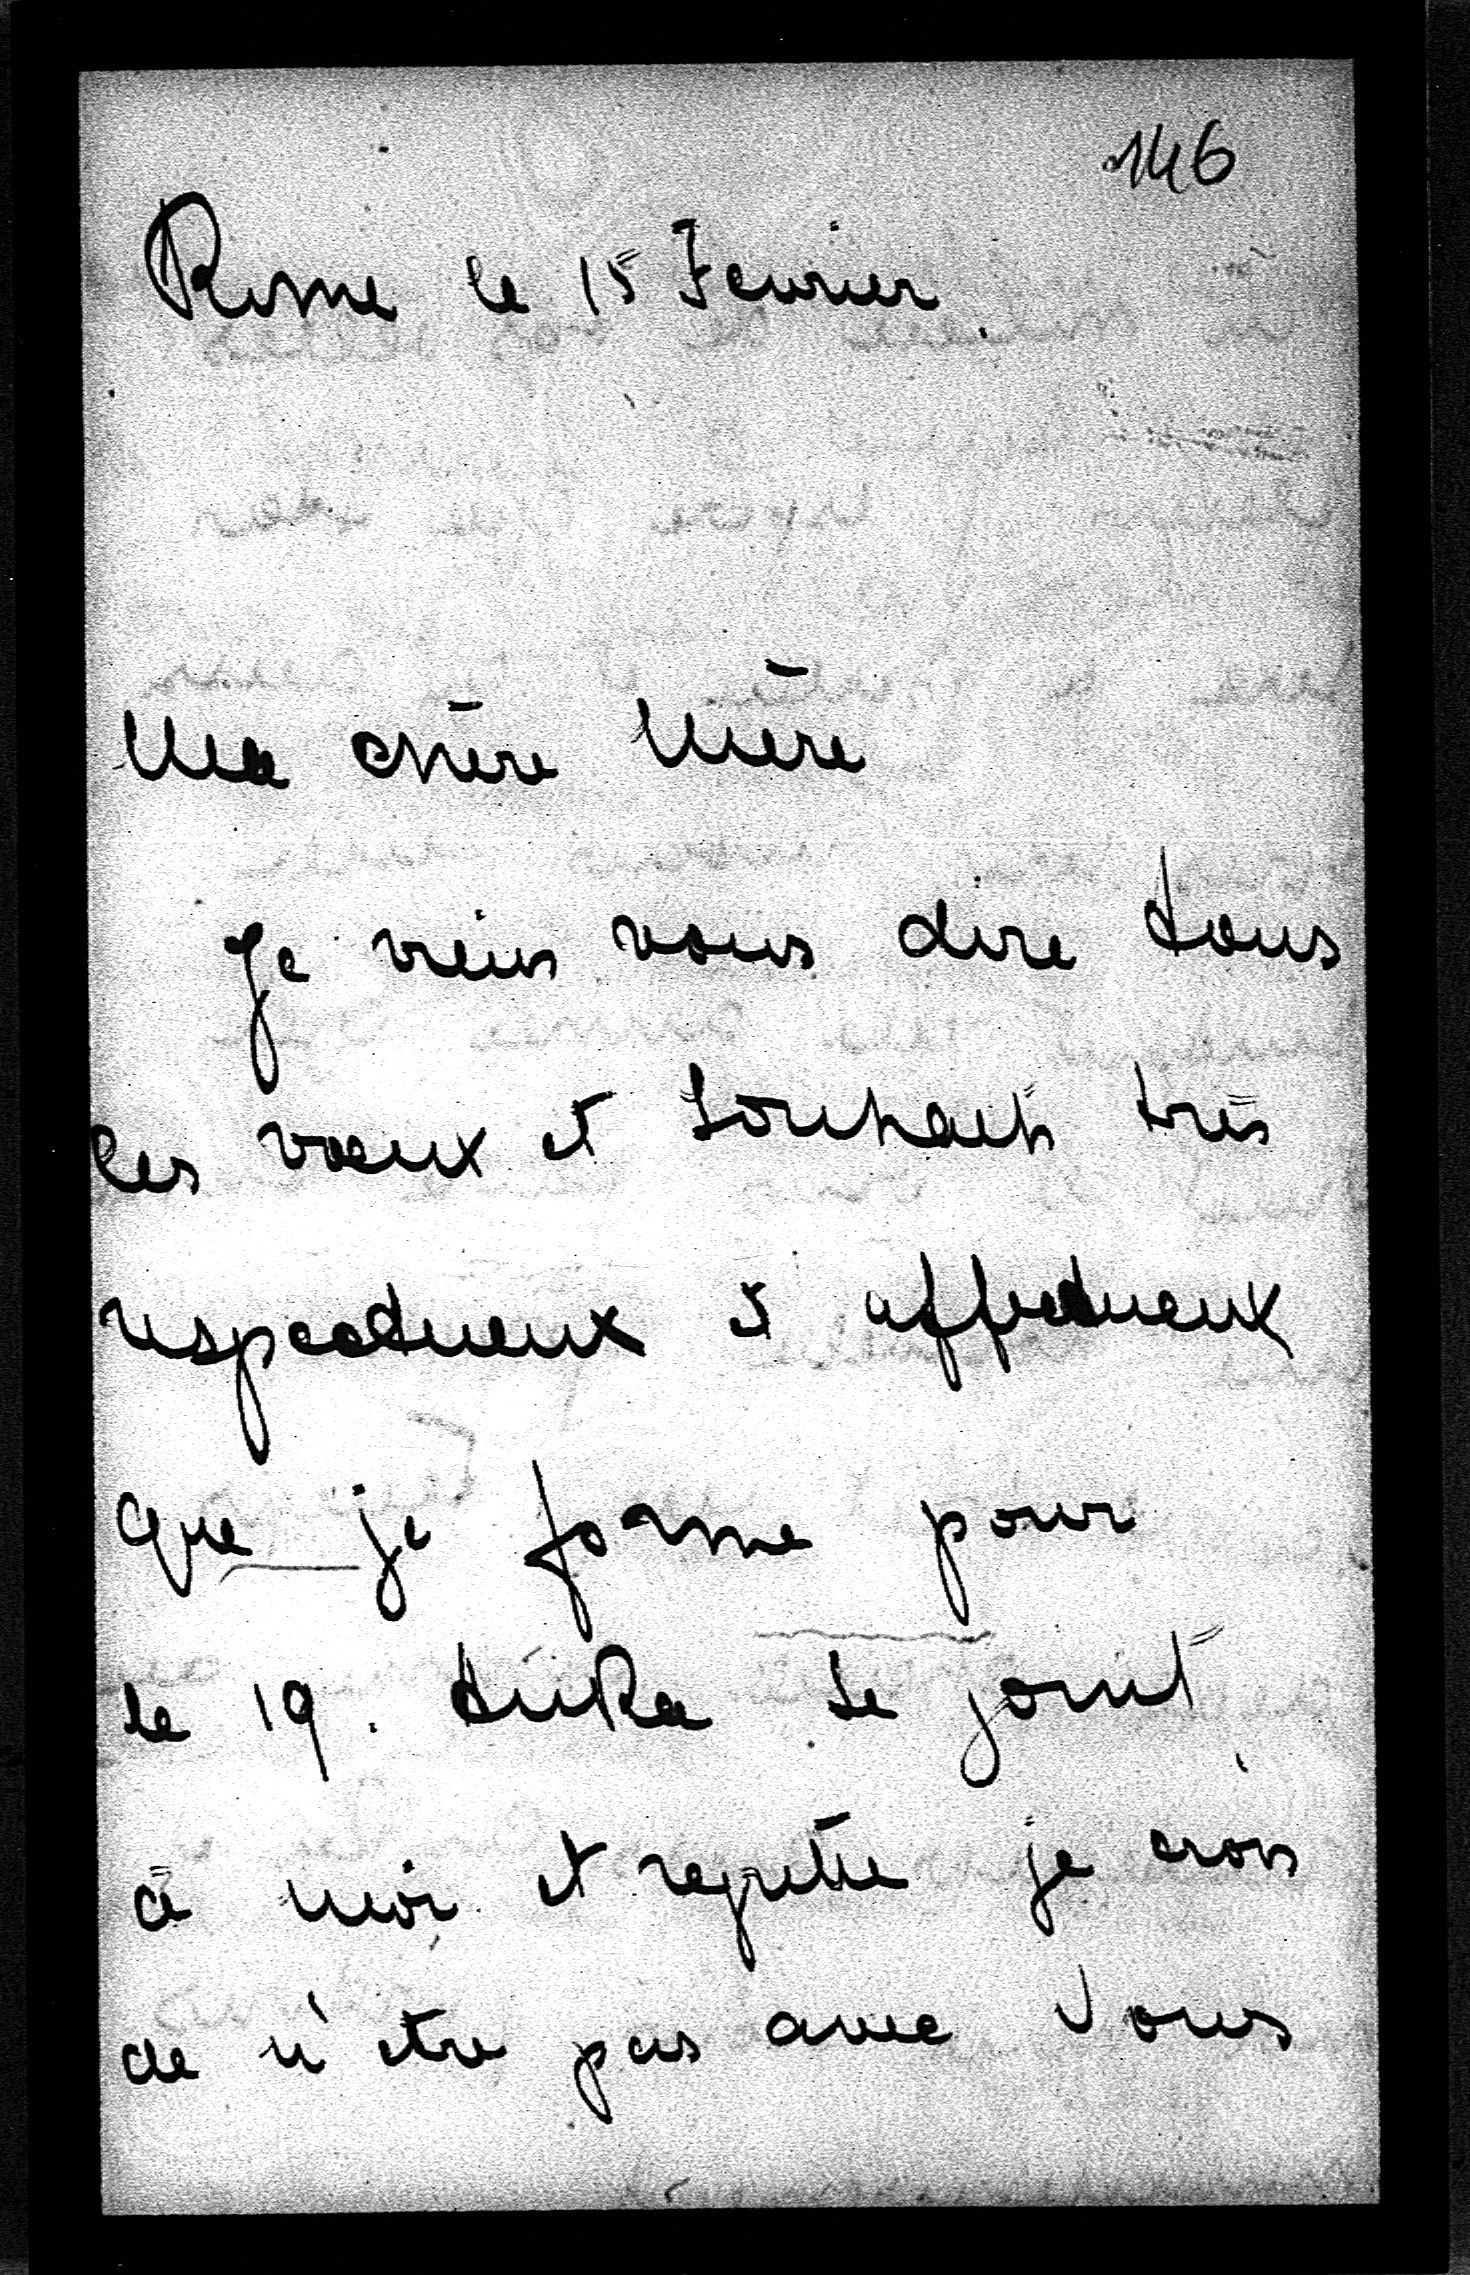 146
Rome le 15 Fevrier.
Ma chère Mère
Je viens vous dire tous
les voeux et souhaits très
respectueux et affectueux
que je forme pour
le 19. Duka se joint
à moi et regrette je crois
de n'être pas avec Vous